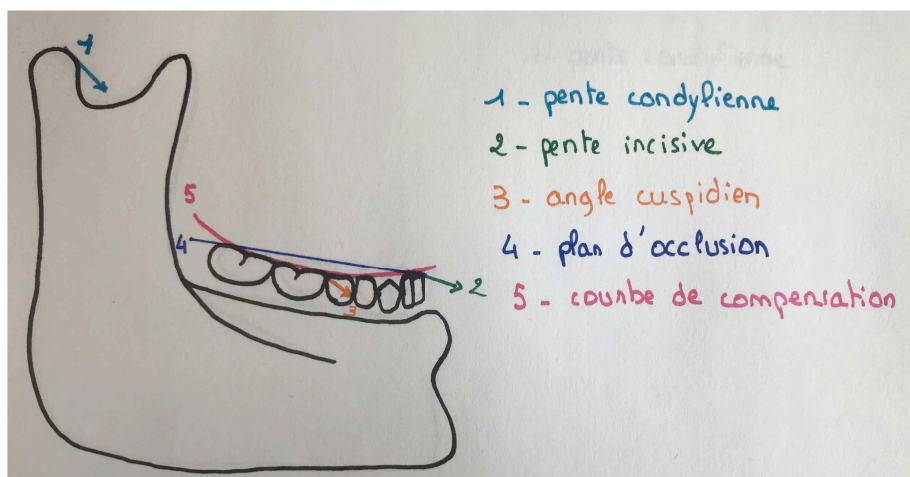 1
1 - pente condylienne
2 - pente incisive
3 - angle cuspidien
5
4
4 - plan d'occlusion
2
3
5 - courbe de compensation